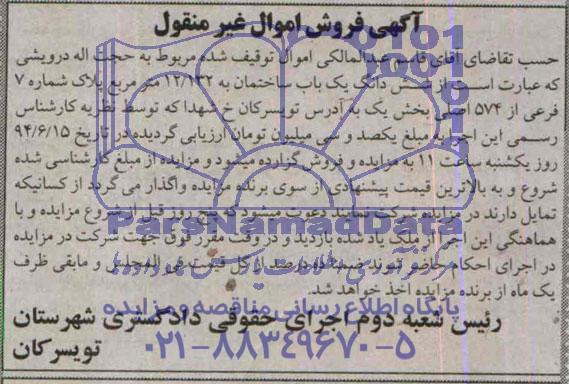 آگهی فروش اموال غیر منقول
حسب تقاضای آقای قاسم عبدالمالکی اموال توقیف شده مربوط به حجت اله درویشی
که عبارت است از شش دانگ یک باب ساختمان به ۱۲/۱۳۲ متر مربع پلاک شماره ۷
فرعی از ۵۷۴ اصلی بخش یک به آدرس تویسرکان خ شهدا که توسط نظریه کارشناس
رسمی این اجرا به مبلغ یکصد و سی میلیون تومان ارزیابی گردیده در تاریخ ۹۴/۶/۱۵
روز یکشنبه ساعت ۱۱ به مزایده و فروش گزارده میشود و مزایده از مبلغ کارشناسی شده
شروع و به بالاترین قیمت پیشنهادی از سوی برنده مزایده واگذار می گردد از کسانیکه
تمایل دارند در مزایده شرکت نمایند دعوت میشود که پنج روز قبل از شروع مزایده و با
هماهنگی این اجرا از ملک یاد شده بازدید و در وقت مقرر فوق جهت شرکت در مزایده
در اجرای احکام حاضر شوند ضمنا ده درصد از کل قیمت فی المجلس و مابقی ظرف
یک ماه از برنده مزایده اخذ خواهد شد.
رئیس شعبه دوم اجرای حقوقی دادگستری شهرستان
تویسرکان
ParsNamadData
پایگاه اطلاع رسانی مناقصه و مزایده
۰۲۱-۸۸۳۴۹۶۷۰-۵